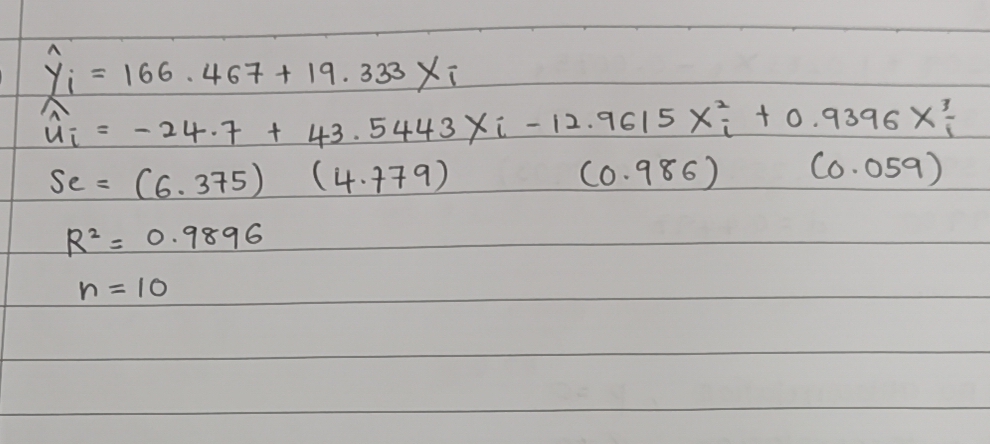 Ŷi = 166.467 + 19.333 Xi
û̂i = -24.7 + 43.5443 Xi - 12.9615 X²i + 0.9396 X³i
Se = (6.375) (4.779) (0.986) (0.059)
R² = 0.9896
n = 10